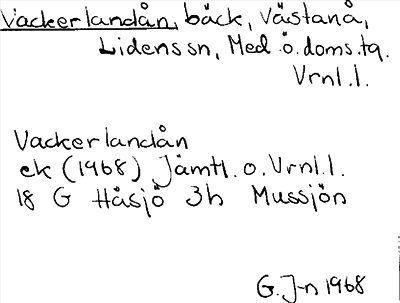 Vackerlandån, bäck, Västanå,
Lidens sn, Med. ö. doms.tg.
Vrnl.l.
Vackerlandån
ek (1968) Jämtl. o. Vrnl.l.
18 G Håsjö 3h Mussjön
G. J-n 1968